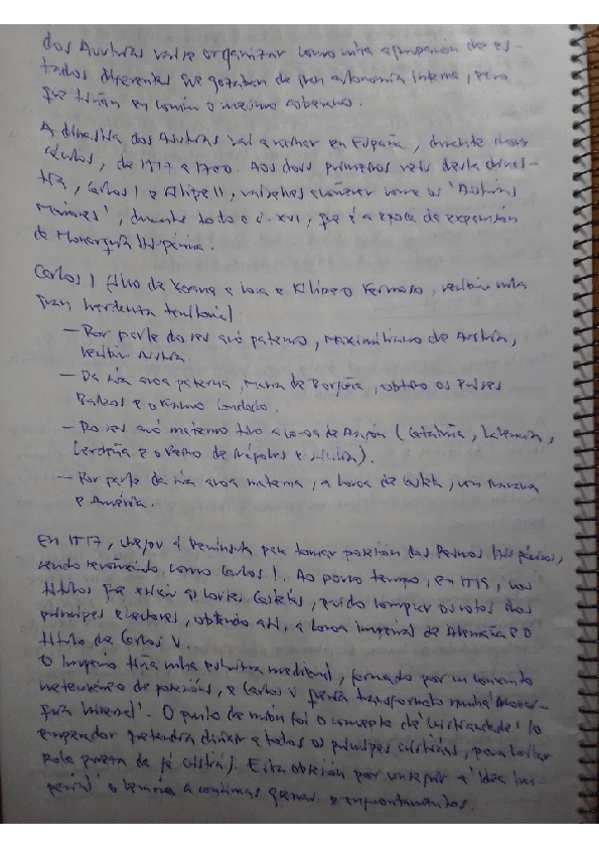 dos Austrias vaise organizar como unha agrupación de es-
tados diferentes que gozaban de gran autonomía interna, pero
que tiñan en común o mesmo soberano.
A dinastía dos Austrias vai a reinar en España, durante dous
séculos, de 1517 a 1700. Aos dous primeiros reis desta dinas-
tía, Carlos I e Filipe II, coñecer como os 'Austrias
Maiores', durante todo o s. XVI, que é a época de expansión
da Monarquía Hispánica.
Carlos I fillo de Xoana a Loca e Filipe o Fermoso, recibiu unha
gran herdanza territorial
- Por parte do seu avó paterno, Maximiliano de Austria,
recibiu Austria.
- Da súa avoa paterna, María de Borgoña, obtivo os Países
Baixos e o Franco Condado.
- Do seu avó materno tivo a Coroa de Aragón (Cataluña, Valencia,
Cerdeña e o Reino de Nápoles e Sicilia).
- Por parte da súa avoa materna, a Coroa de Castela, con Navarra
e América.
En 1517, chegou á Península para tomar posesión dos Reinos Hispánicos,
sendo recoñecido como Carlos I. Ao pouco tempo, en 1519, cos
títulos que as Cortes Castelás, puido comprar os votos dos
príncipes electores, obtendo así, a Coroa imperial de Alemaña e o
título de Carlos V.
O imperio tiña unha estrutura medieval, formado por un conxunto
heteroxéneo de posesións, e Carlos V quería transformalo nunha 'Monar-
quía Universal'. O punto de unión foi o concepto de 'Cristiandade' (o
emperador pretendía dirixir a todos os príncipes cristiáns, para loitar
pola da fe cristiá). Esta obsesión por conseguir a 'idea im-
perial' o levaría a continuas guerras e enfrontamentos.